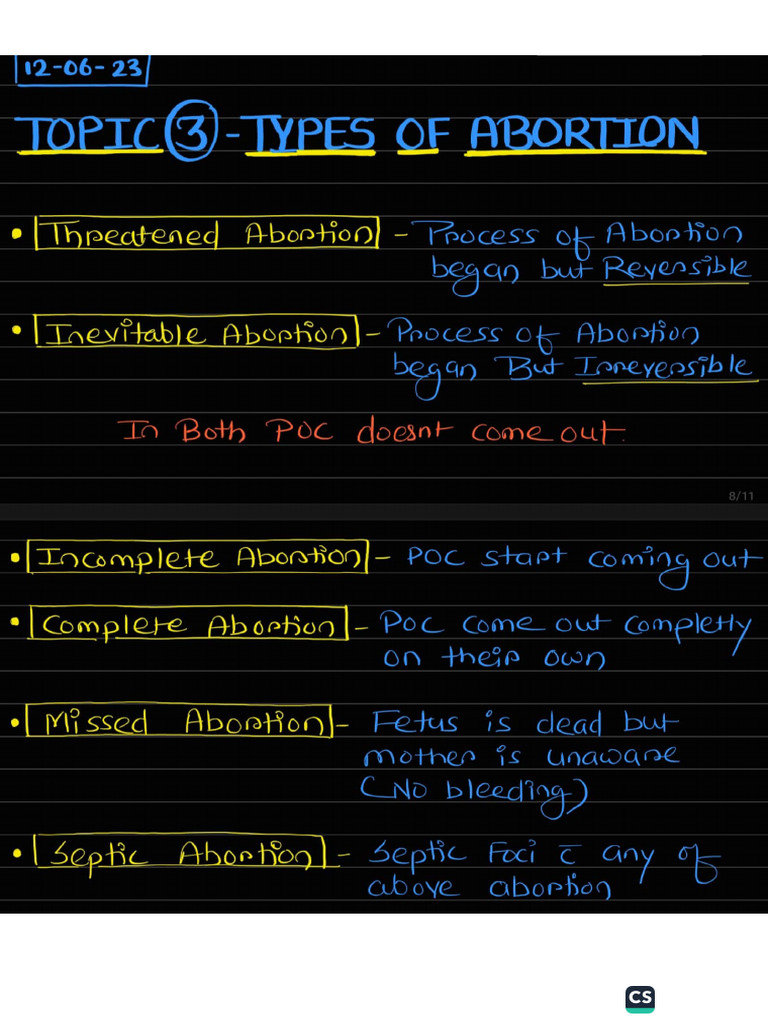 12-06-23
TOPIC ③-TYPES OF ABORTION
• Threatened Abortion - Process of Abortion
began but Reversible
• Inevitable Abortion - Process of Abortion
began But Irreversible
In Both POC doesnt come out.
8/11
• Incomplete Abortion - POC start coming out
• Complete Abortion - POC come out completly
on their own
• Missed Abortion - Fetus is dead but
mother is unaware
(No bleeding)
• Septic Abortion - Septic Foci c̅ any of
above abortion
CS